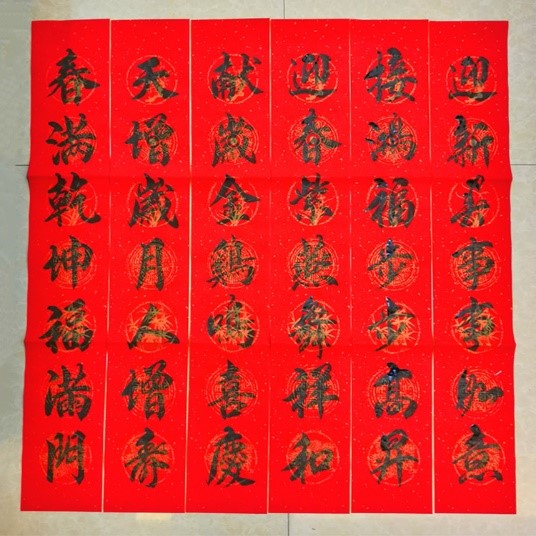 迎新喜事事如意
接鸿福步步高昇
迎春紫燕舞祥和
献歲金鷄鳴喜慶
天增歲月人增寿
春满乾坤福满門